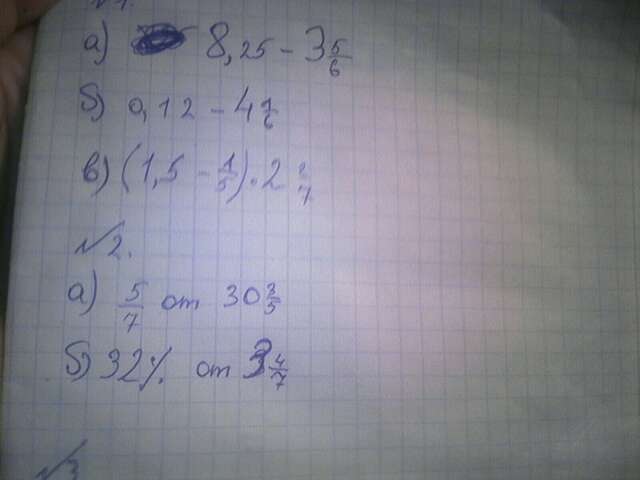 №1.
а) 8,25 - 3 5/6
б) 0,12 - 4 1/6
в) (1,5 - 1/5) · 2 2/7
№2.
а) 5/7 от 30 3/5
б) 32% от 3 4/7
№3